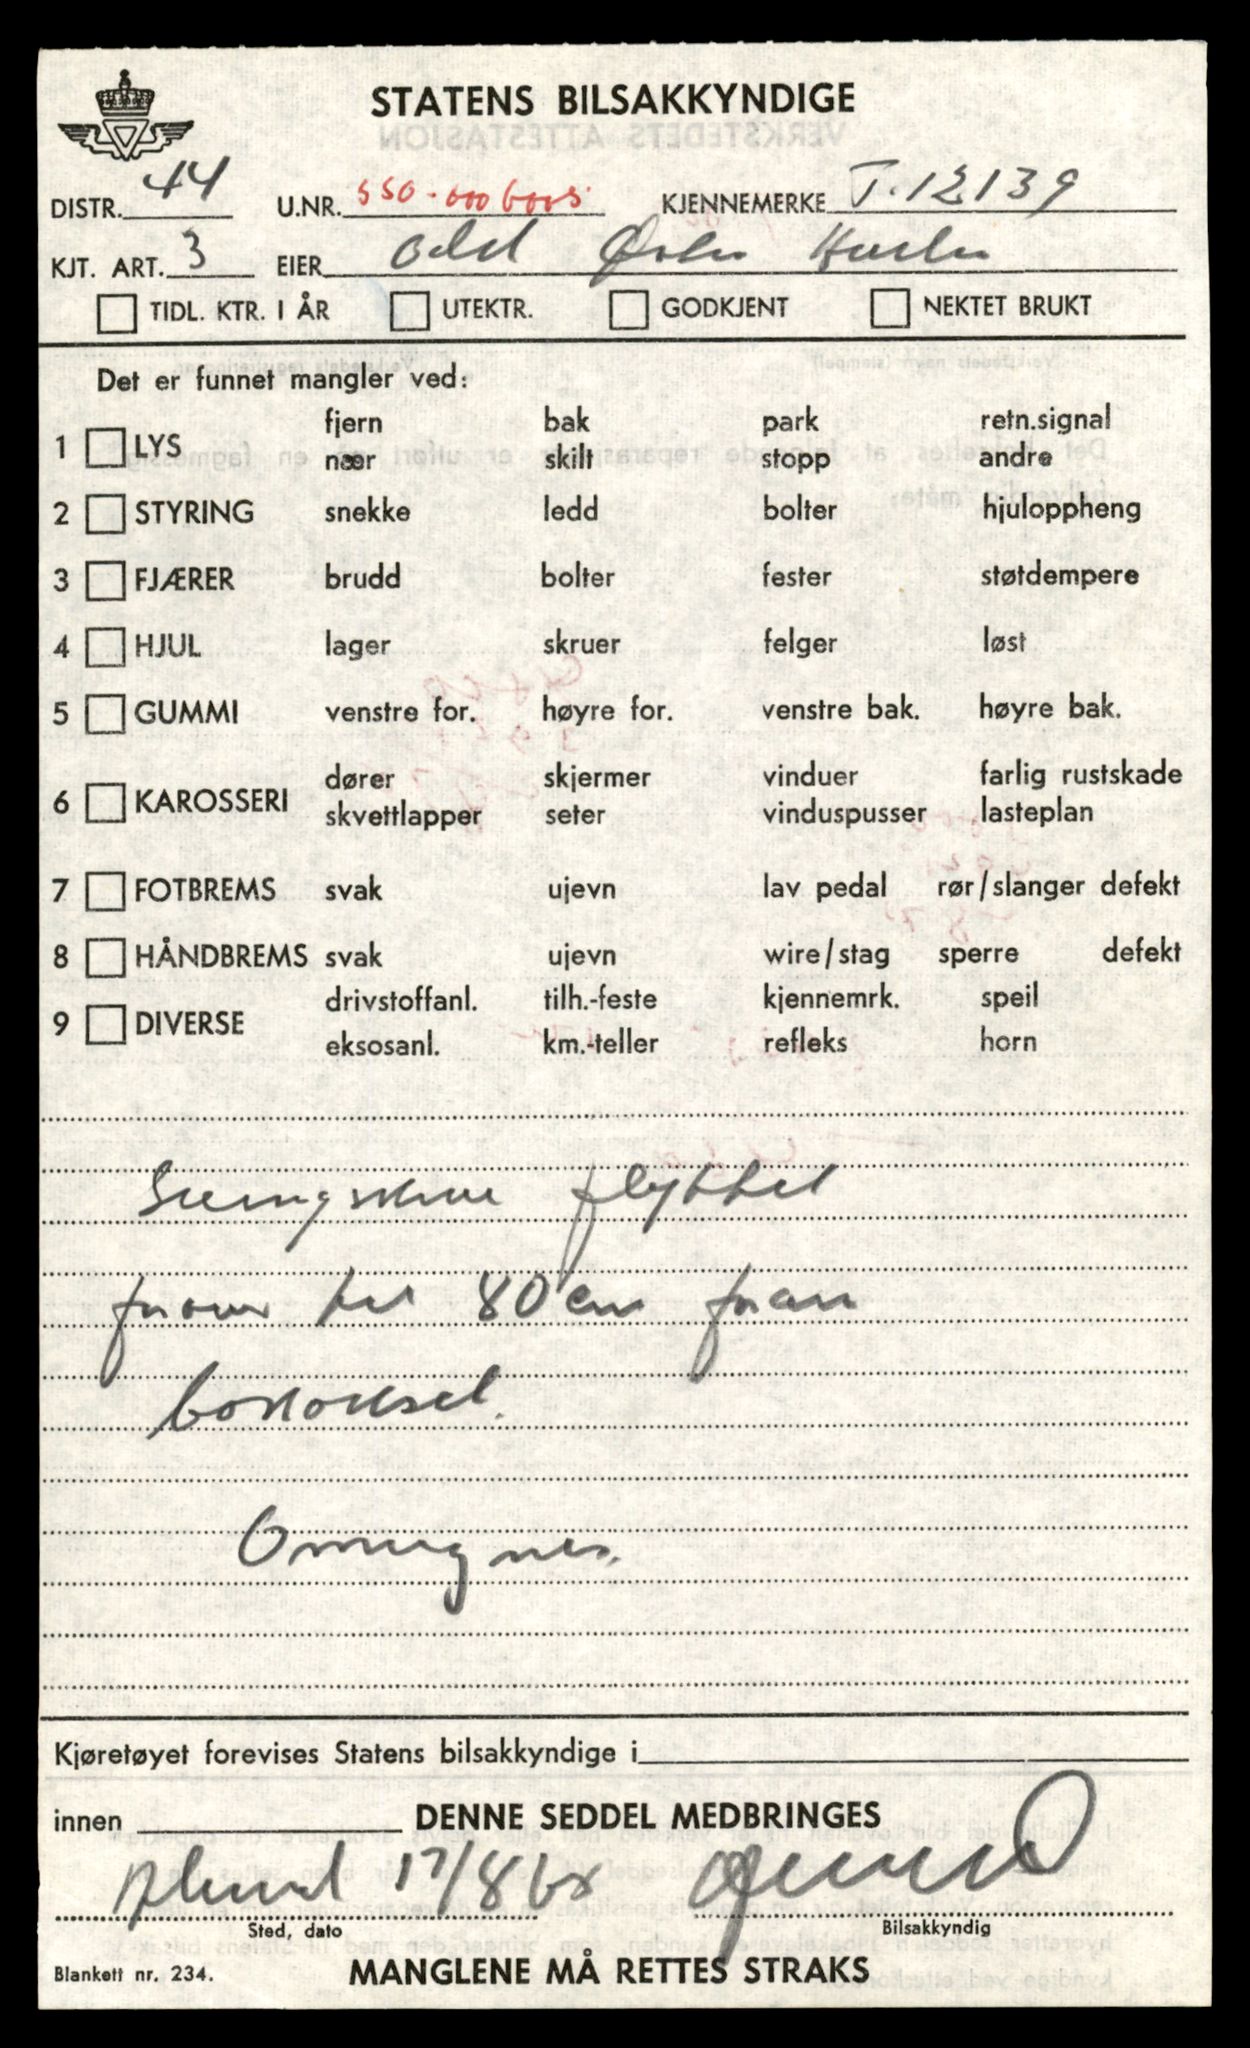 STATENS BILSAKKYNDIGE
DISTR. 44 U.NR. KJENNEMERKE T-12139
KJT. ART. 3 EIER Odd
TIDL. KTR. I ÅR UTEKTR. GODKJENT NEKTET BRUKT
Det er funnet mangler ved:
1 LYS fjern bak park retn.signal
nær skilt stopp andre
2 STYRING snekke ledd bolter hjuloppheng
3 FJÆRER brudd bolter fester støtdempere
4 HJUL lager skruer felger løst
5 GUMMI venstre for. høyre for. venstre bak. høyre bak.
6 KAROSSERI dører skjermer vinduer farlig rustskade
skvettlapper seter vinduspusser lasteplan
7 FOTBREMS svak ujevn lav pedal rør/slanger defekt
8 HÅNDBREMS svak ujevn wire/stag sperre defekt
9 DIVERSE drivstoffanl. tilh.-feste kjennemrk. speil
eksosanl. km.-teller refleks horn
Svingskive flyttet
frover til 80 cm foran
bakaksel.
Omregnes.
Kjøretøyet forevises Statens bilsakkyndige i
innen DENNE SEDDEL MEDBRINGES
Ålesund 17/8 68
Sted, dato Bilsakkyndig
Blankett nr. 234. MANGLENE MÅ RETTES STRAKS